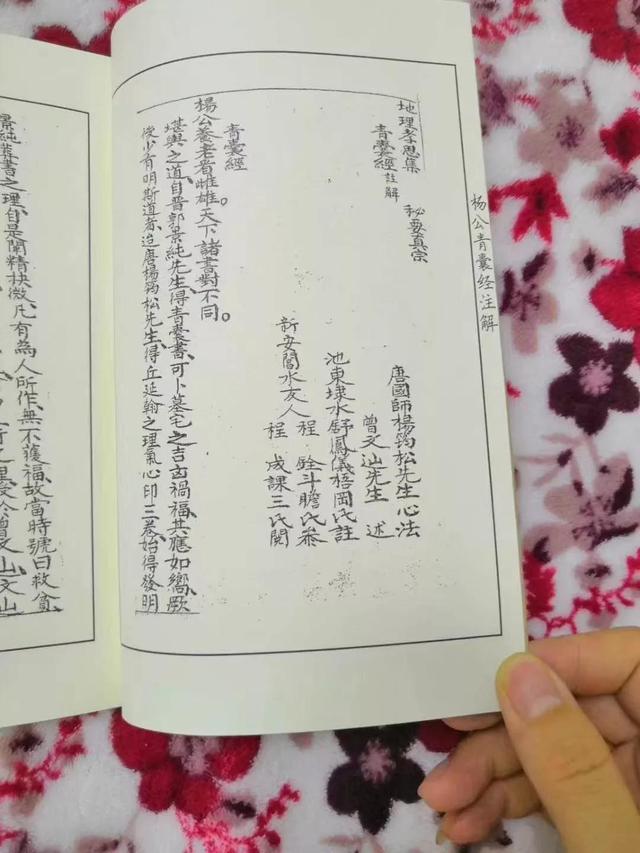 杨公青囊经注解
地理孝思集
青囊經註解 秘要真宗
唐國師楊筠松先生心法
曾文辿先生 述
池東埭水舒鳳儀梧岡氏註
新安閶水友人程 銓斗瞻氏叅
程 成課三氏閱
青囊經
楊公養老看雌雄。天下諸書對不同。
堪輿之道自晋郭景純先生得青囊書可卜墓宅之吉凶禍福其應如嚮厥
後少有明斯道者迨唐楊筠松先生得丘延翰之理氣心印三卷始得發明
景純葬書之理自是闡精抉微凡有為人所作無不獲福故當時號曰救貧